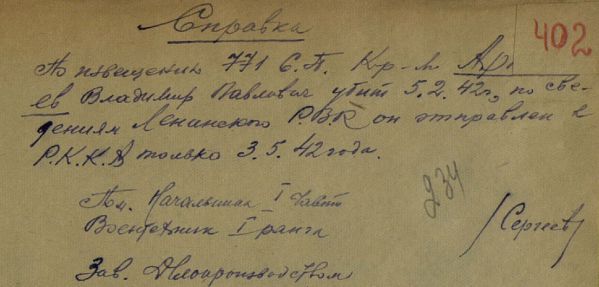 Справка
402
По извещению 771 С.П. Кр-ц Ар
ев Владимир Павлович убит 5.2.42г, по све-
дениям Ленинского Р.В.К он отправлен в
Р.К.К.А только 3.5.42 года.
234
Пм. Начальника I части
Воентехник I ранга
/Сергеев/
Зав. Делопроизводством